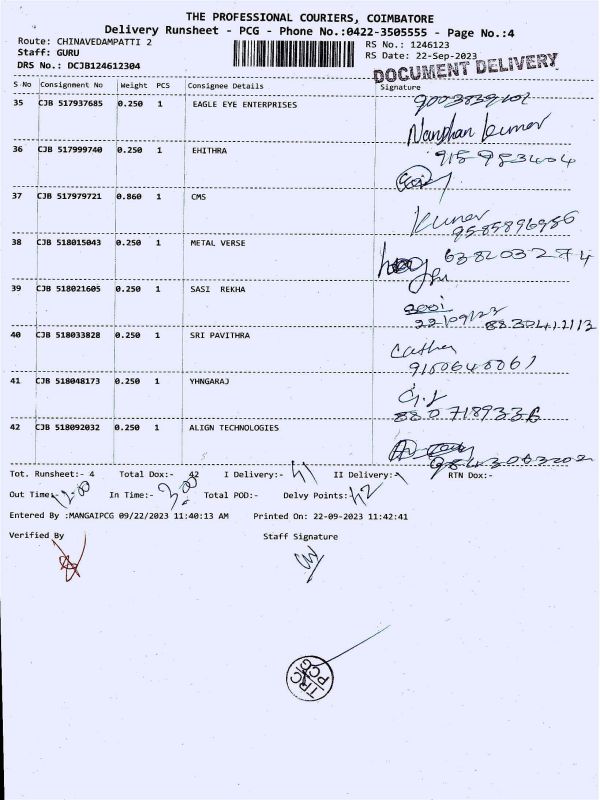 THE PROFESSIONAL COURIERS, COIMBATORE
Delivery Runsheet - PCG - Phone No.:0422-3505555 - Page No.:4
Route: CHINAVEDAMPATTI 2 RS No.: 1246123
Staff: GURU RS Date: 22-Sep-2023
DRS No.: DCJB124612304 DOCUMENT DELIVERY
S No Consignment No Weight PCS Consignee Details Signature
35 CJB 517937685 0.250 1 EAGLE EYE ENTERPRISES
kumar
36 CJB 517999740 0.250 1 EHITHRA
37 CJB 517979721 0.860 1 CMS
Kumar
9585896986
38 CJB 518015043 0.250 1 METAL VERSE 638203274
39 CJB 518021605 0.250 1 SASI REKHA
22/09/23
40 CJB 518033828 0.250 1 SRI PAVITHRA
41 CJB 518048173 0.250 1 YHNGARAJ
8807189336
42 CJB 518092032 0.250 1 ALIGN TECHNOLOGIES
9843063202
Tot. Runsheet:- 4 Total Dox:- 42 I Delivery:- 41 II Delivery:- RTN Dox:-
Out Time:- 12.00 In Time:- 3.00 Total POD:- Delvy Points:- 42
Entered By :MANGAIPCG 09/22/2023 11:40:13 AM Printed On: 22-09-2023 11:42:41
Verified By Staff Signature
TRIC
PCG